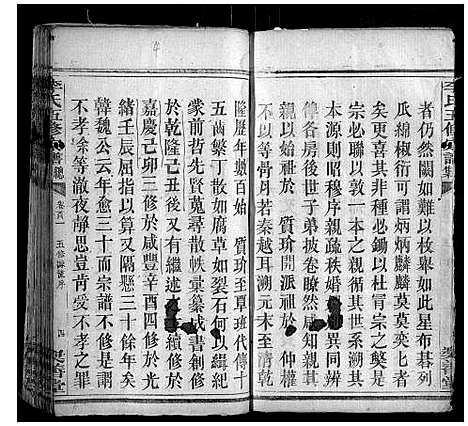 李氏五修
譜
者仍然闕如難以枚舉如此星布碁列
瓜綿椒衍可謂炳炳麟麟莫莫奕七者
矣更喜其非種必鋤以杜冒宗之獘異
宗必聯以敦一本之親循其世系溯其
本源則昭穆序親疏秩婚異同辨
俾各房後子弟披卷瞭然咸知
親以祔始祖於 質玠開派祖於 仲權
不以等骨月若秦越耳溯元末至清乾
隆歷年數百始 質玠至單班代傳十
五齒繁丁散如腐草如裂石何以緝紀
蒙前祈先賢蒐尋散帙彙纂成書創修
於乾隆己丑後又有繼述續修於
嘉慶己卯三修於咸豐辛酉四修於光
緒壬辰屈指以算又隔懸三十餘年矣
韓魏公云年愈三十而宗譜不修是謂
不孝余等澈夜靜思豈肯爰不孝之罪
李氏五修
譜
卷首一
五修譜序
四